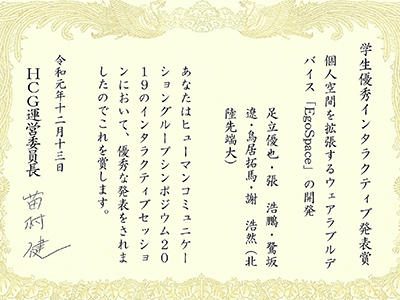 学生優秀インタラクティブ発表賞
個人空間を拡張するウェアラブルデ
バイス「EgoSpace」の開発
足立優也・張 浩鵬・鷲坂
遼・鳥居拓馬・謝 浩然（北
陸先端大）
あなたはヒューマンコミュニケー
ショングループシンポジウム20
19のインタラクティブセッショ
ンにおいて、優秀な発表をされま
したのでこれを賞します。
令和元年十二月十三日
HCG運営委員長
苗村 健